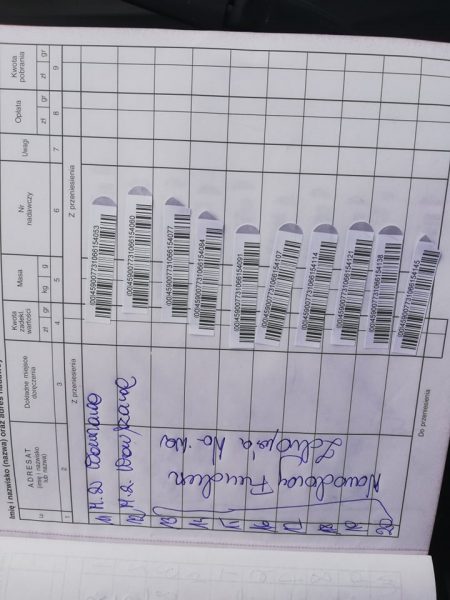 Imię i nazwisko (nazwa) oraz adres nadawcy
ADRESAT
(imię i nazwisko
lub nazwa)
Dokładne miejsce
doręczenia
Kwota
zadekl.
wartości
zł gr
Masa
kg g
Nr
nadawczy
Uwagi
Opłata
zł gr
Kwota
pobrania
zł gr
1 2 3 4 5 6 7 8 9
Z przeniesienia
Z przeniesienia
11 M.D.
00459007731066154053
12 M.D.
00459007731066154060
13
00459007731066154077
14
00459007731066154084
15
00459007731066154091
16
00459007731066154107
17
00459007731066154114
18
00459007731066154121
19
00459007731066154138
20
00459007731066154145
Narodowy Fundusz
Zdrowia
Do przeniesienia